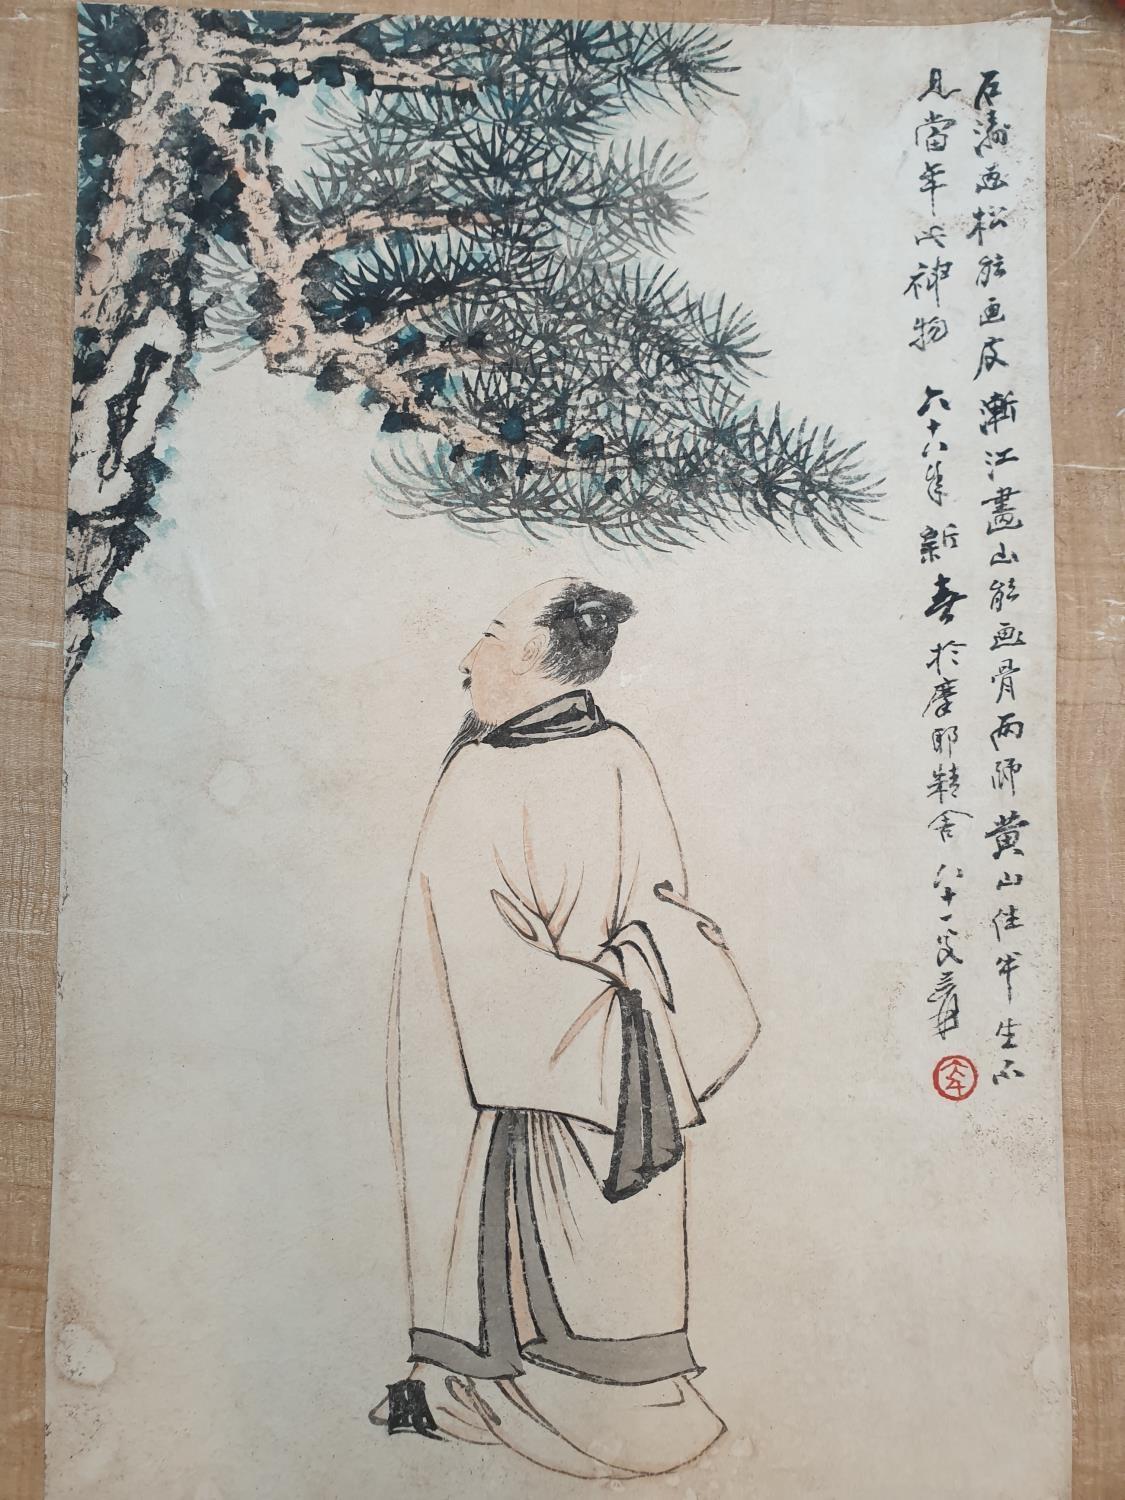 石濤画松能画皮漸江畫山能画骨兩師黄山住半生不
見當年此神物 六十八年新春於摩耶精舍 八十一叟爰
大千